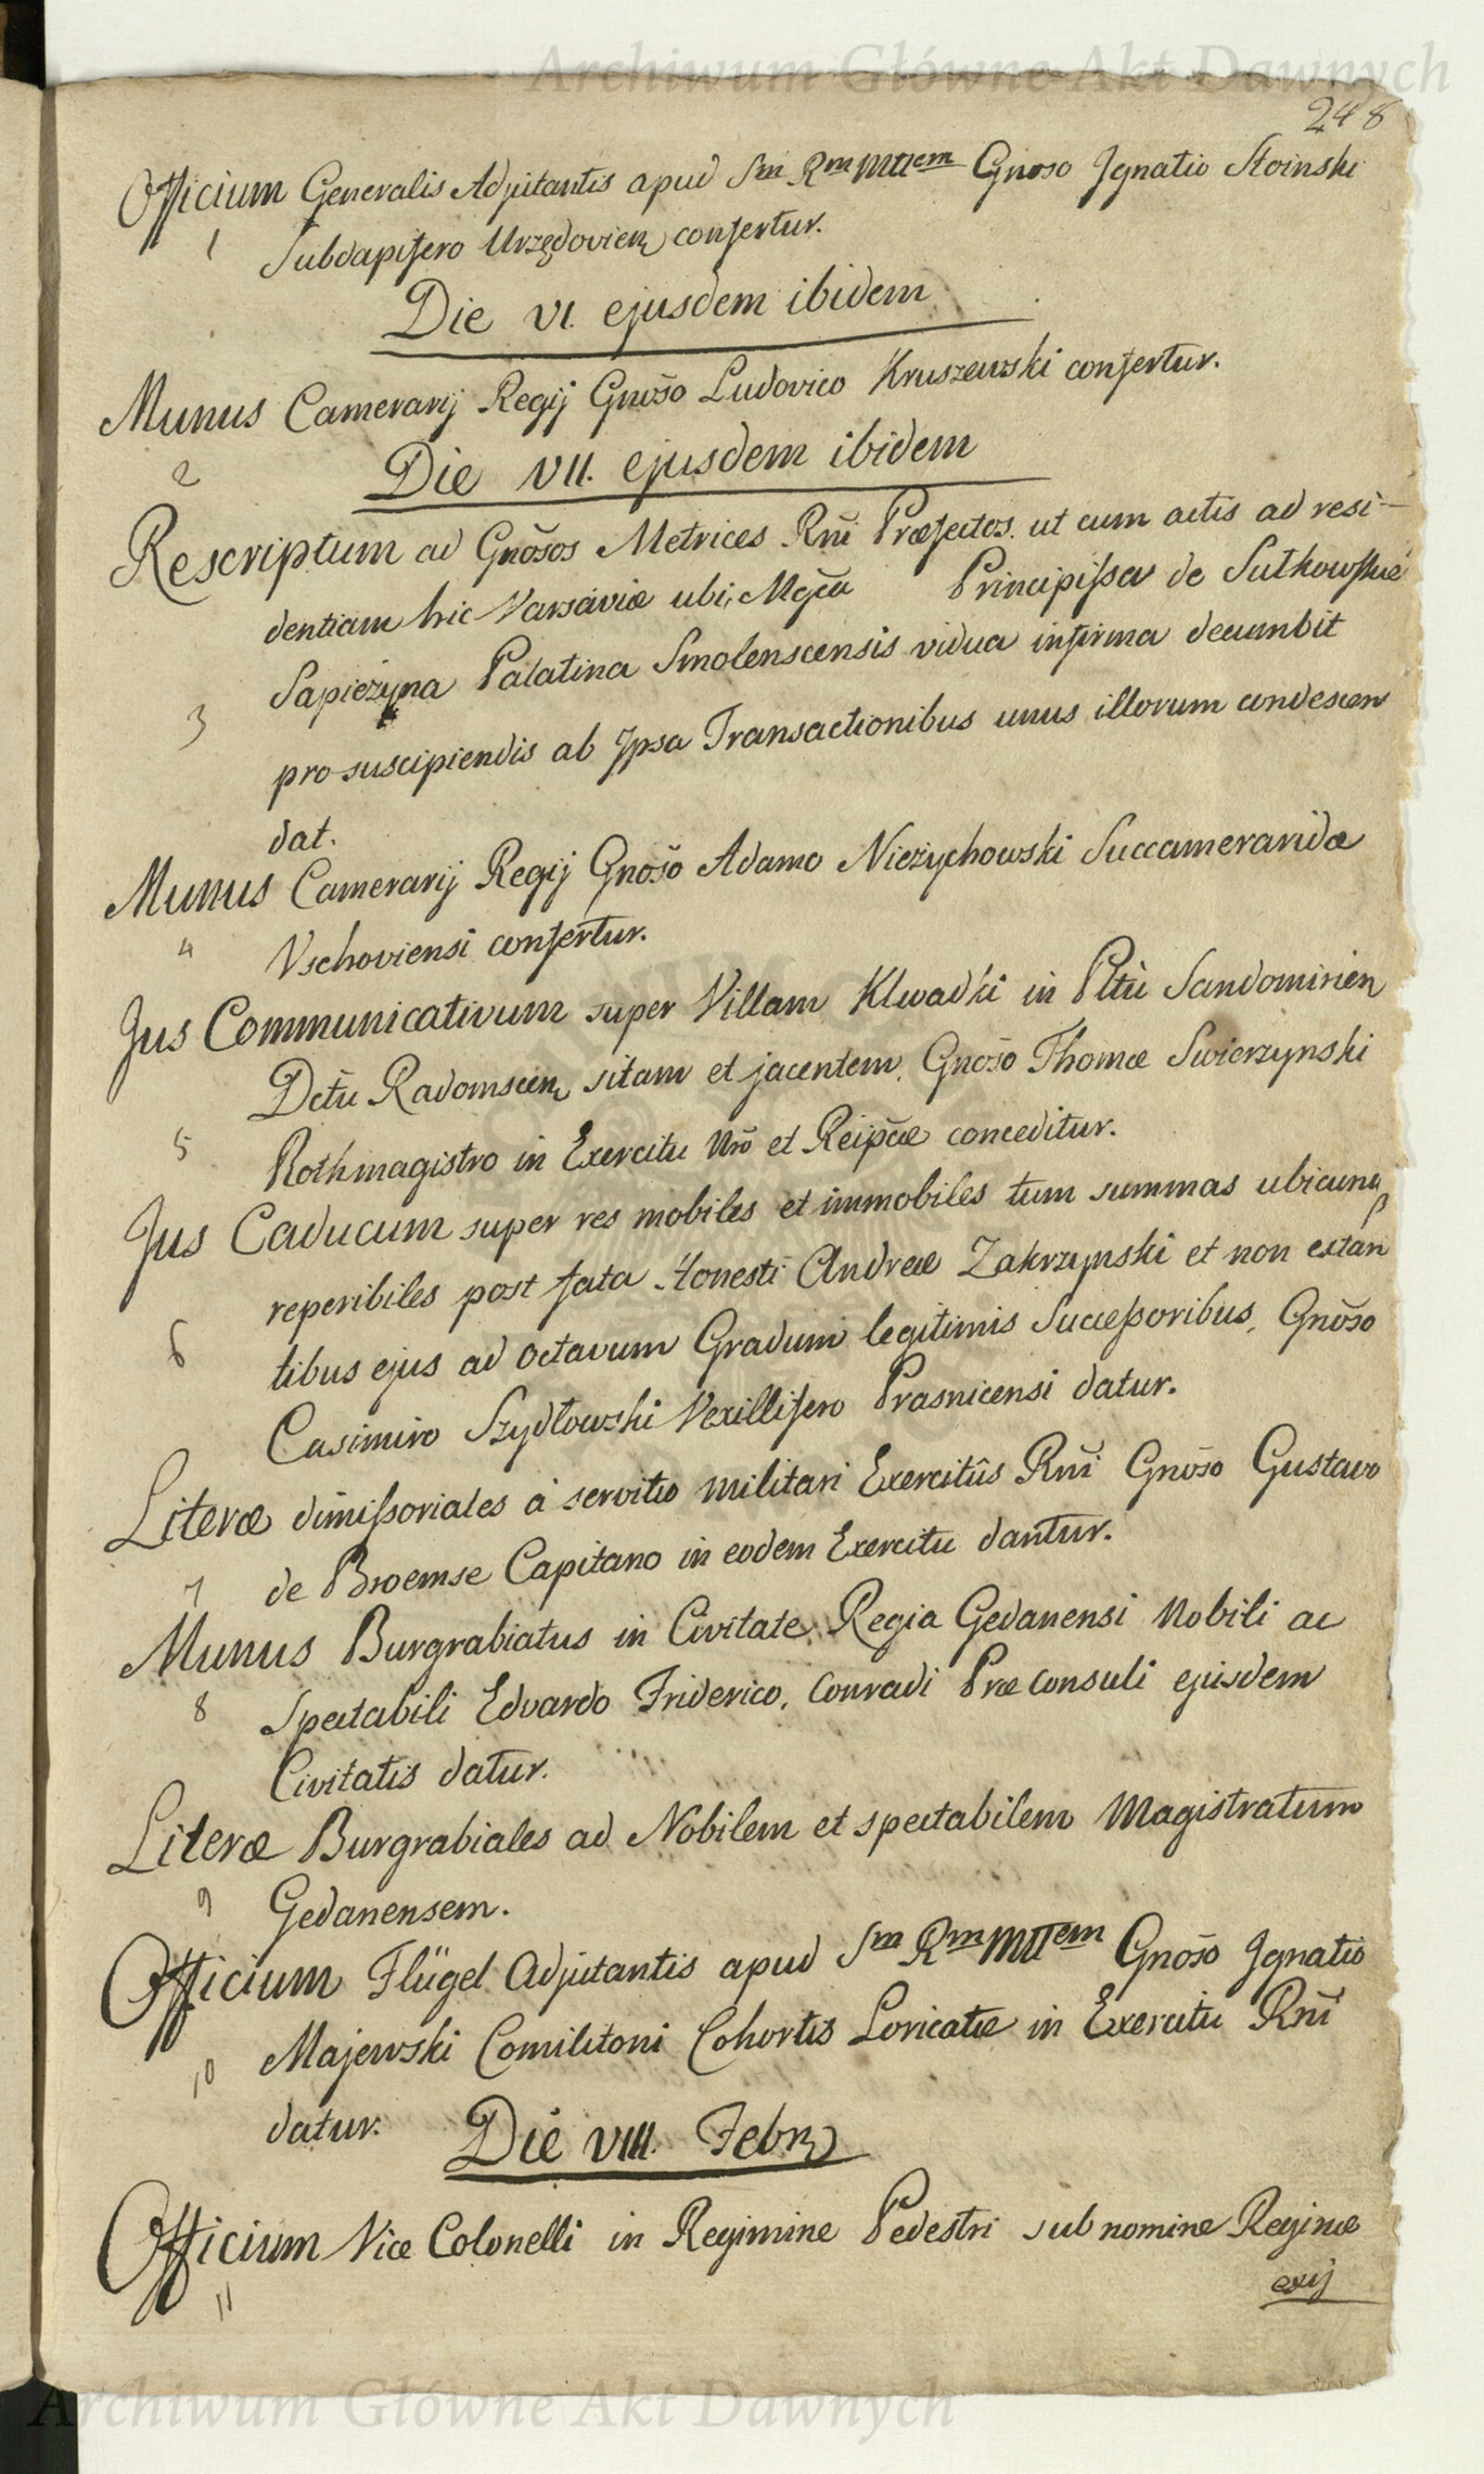 Archiwum Główne Akt Dawnych
248
Officium Generalis Adjutantis apud Sm Rm MTTem Gnoso Ignatio Stoinski
1 Subdapifero Urzędovien confertur.
Die VI. ejusdem ibidem
Munus Camerarij Regij Gnõso Ludovico Kruszewski confertur.
2
Die VII. ejusdem ibidem
Rescriptum ad Gnõsos Metrices Rñi Præfectos. ut cum actis ad resi-
dentiam hic Varsaviæ ubi Mgca Principissa de Sułkowskie
Sapiezyna Palatina Smolenscensis vidua infirma decumbit
3 pro suscipiendis ab Ipsa Transactionibus unus illorum condescen
dat.
Munus Camerarij Regij Gnõso Adamo Nieżychowski Succameraridæ
4 Vschoviensi confertur.
Jus Communicativum super Villam Klwadki in Pltu Sandomirien
Dctũ Radomscen sitam et jacentem. Gnõso Thomæ Swierzynski
5 Rothmagistro in Exercitu Nrõ et Reipcæ conceditur.
Jus Caducum super res mobiles et immobiles tum summas ubicunq
reperibiles post fata Honesti Andreæ Zakrzynski et non extan
6 tibus ejus ad octavum Gradum legitimis Successoribus, Gnõso
Casimiro Szydłowski Vexillifero Prasnicensi datur.
Literæ dimissoriales à servitio militari Exercitûs Rñi Gnõso Gustavo
7 de Broemse Capitano in eodem Exercitu dantur.
Munus Burgrabiatus in Civitate Regia Gedanensi Nobili ac
8 Spectabili Edvardo Friderico, Conradi Præconsuli ejusdem
Civitatis datur.
Literæ Burgrabiales ad Nobilem et spectabilem Magistratum
9 Gedanensem.
Officium Flügel Adjutantis apud Sm Rm MTTem Gnõso Ignatio
10 Majewski Comilitoni Cohortis Loricatæ in Exercitu Rñi
datur. Die VIII. Febr
Officium Vice Colonelli in Regimine Pedestri sub nomine Reginæ
11
exij
Archiwum Główne Akt Dawnych